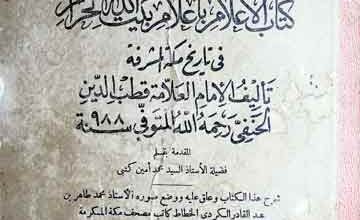 كتاب الإعلام بأعلام بيت الله الحرام
في تاريخ مكة المشرفة
تأليف الإمام العلامة قطب الدين
الحنفي رحمه الله المتوفى سنة ٩٨٨
المقدمة بقلم
فضيلة الأستاذ السيد محمد أمين كتبي
شرح هذا الكتاب وعلق عليه ووضع صوره الأستاذ محمد طاهر بن
عبد القادر الكردي الخطاط كاتب مصحف مكة المكرمة